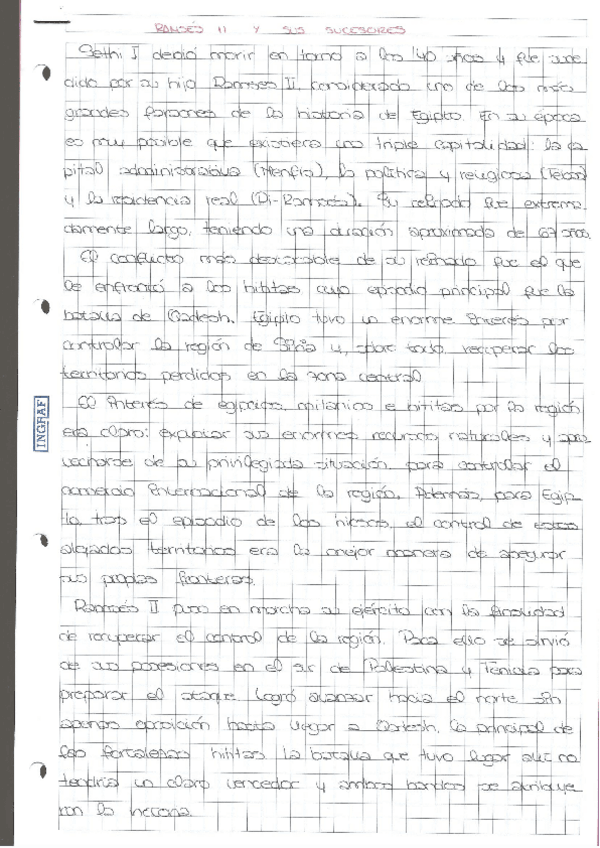 RAMSÉS II Y SUS SUCESORES
Sethi I debió morir en torno a los 40 años y fue suce
dido por su hijo Ramses II, considerado uno de los más
grandes faraones de la historia de Egipto. En su época
es muy posible que existiera una triple capitalidad: la ca
pital administrativa (Menfis), la política y religiosa (Tebas)
y la residencia real (Pi-Ramsés). Su reinado fue extrema
damente largo, teniendo una duración aproximada de 67 años.
El conflicto más destacable de su reinado fue el que
le enfrentó a los hititas cuyo episodio principal fue la
batalla de Qadesh. Egipto tuvo un enorme interés por
controlar la región de Siria y, sobre todo, recuperar los
territorios perdidos en la zona central.
El interés de egipcios, mitannios e hititas por la región
era claro: explotar sus enormes recursos naturales y apro
vecharse de su privilegiada situación para controlar el
comercio internacional de la región. Además, para Egip
to tras el episodio de los hicsos, el control de estos
alejados territorios era la mejor manera de asegurar
sus propias fronteras.
Ramsés II puso en marcha su ejército con la finalidad
de recuperar el control de la región. Para ello se sirvió
de sus posesiones en el sur de Palestina y Fenicia para
preparar el ataque. Logró avanzar hacia el norte sin
apenas oposición hasta llegar a Qadesh, la principal de
las fortalezas hititas. La batalla que tuvo lugar allí no
tendría un claro vencedor y ambos bandos se atribuye
ron la victoria.
INGRAF